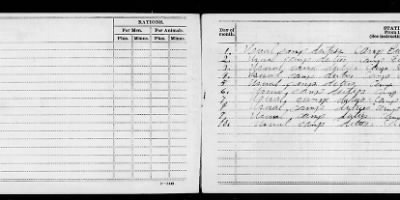 RATIONS.
For Men. For Animals.
Plus. Minus. Plus. Minus.
Day of month.
STATI
From
(See instruction
1. Usual camp duties Camp
2. Usual camp duties Camp
3. Usual camp duties Camp
4. Usual camp duties Camp
5. Usual camp duties Camp
6. Usual camp duties Camp
7. Usual camp duties Camp
8. Usual camp duties Camp
9. Usual camp duties Camp
10. Usual camp duties